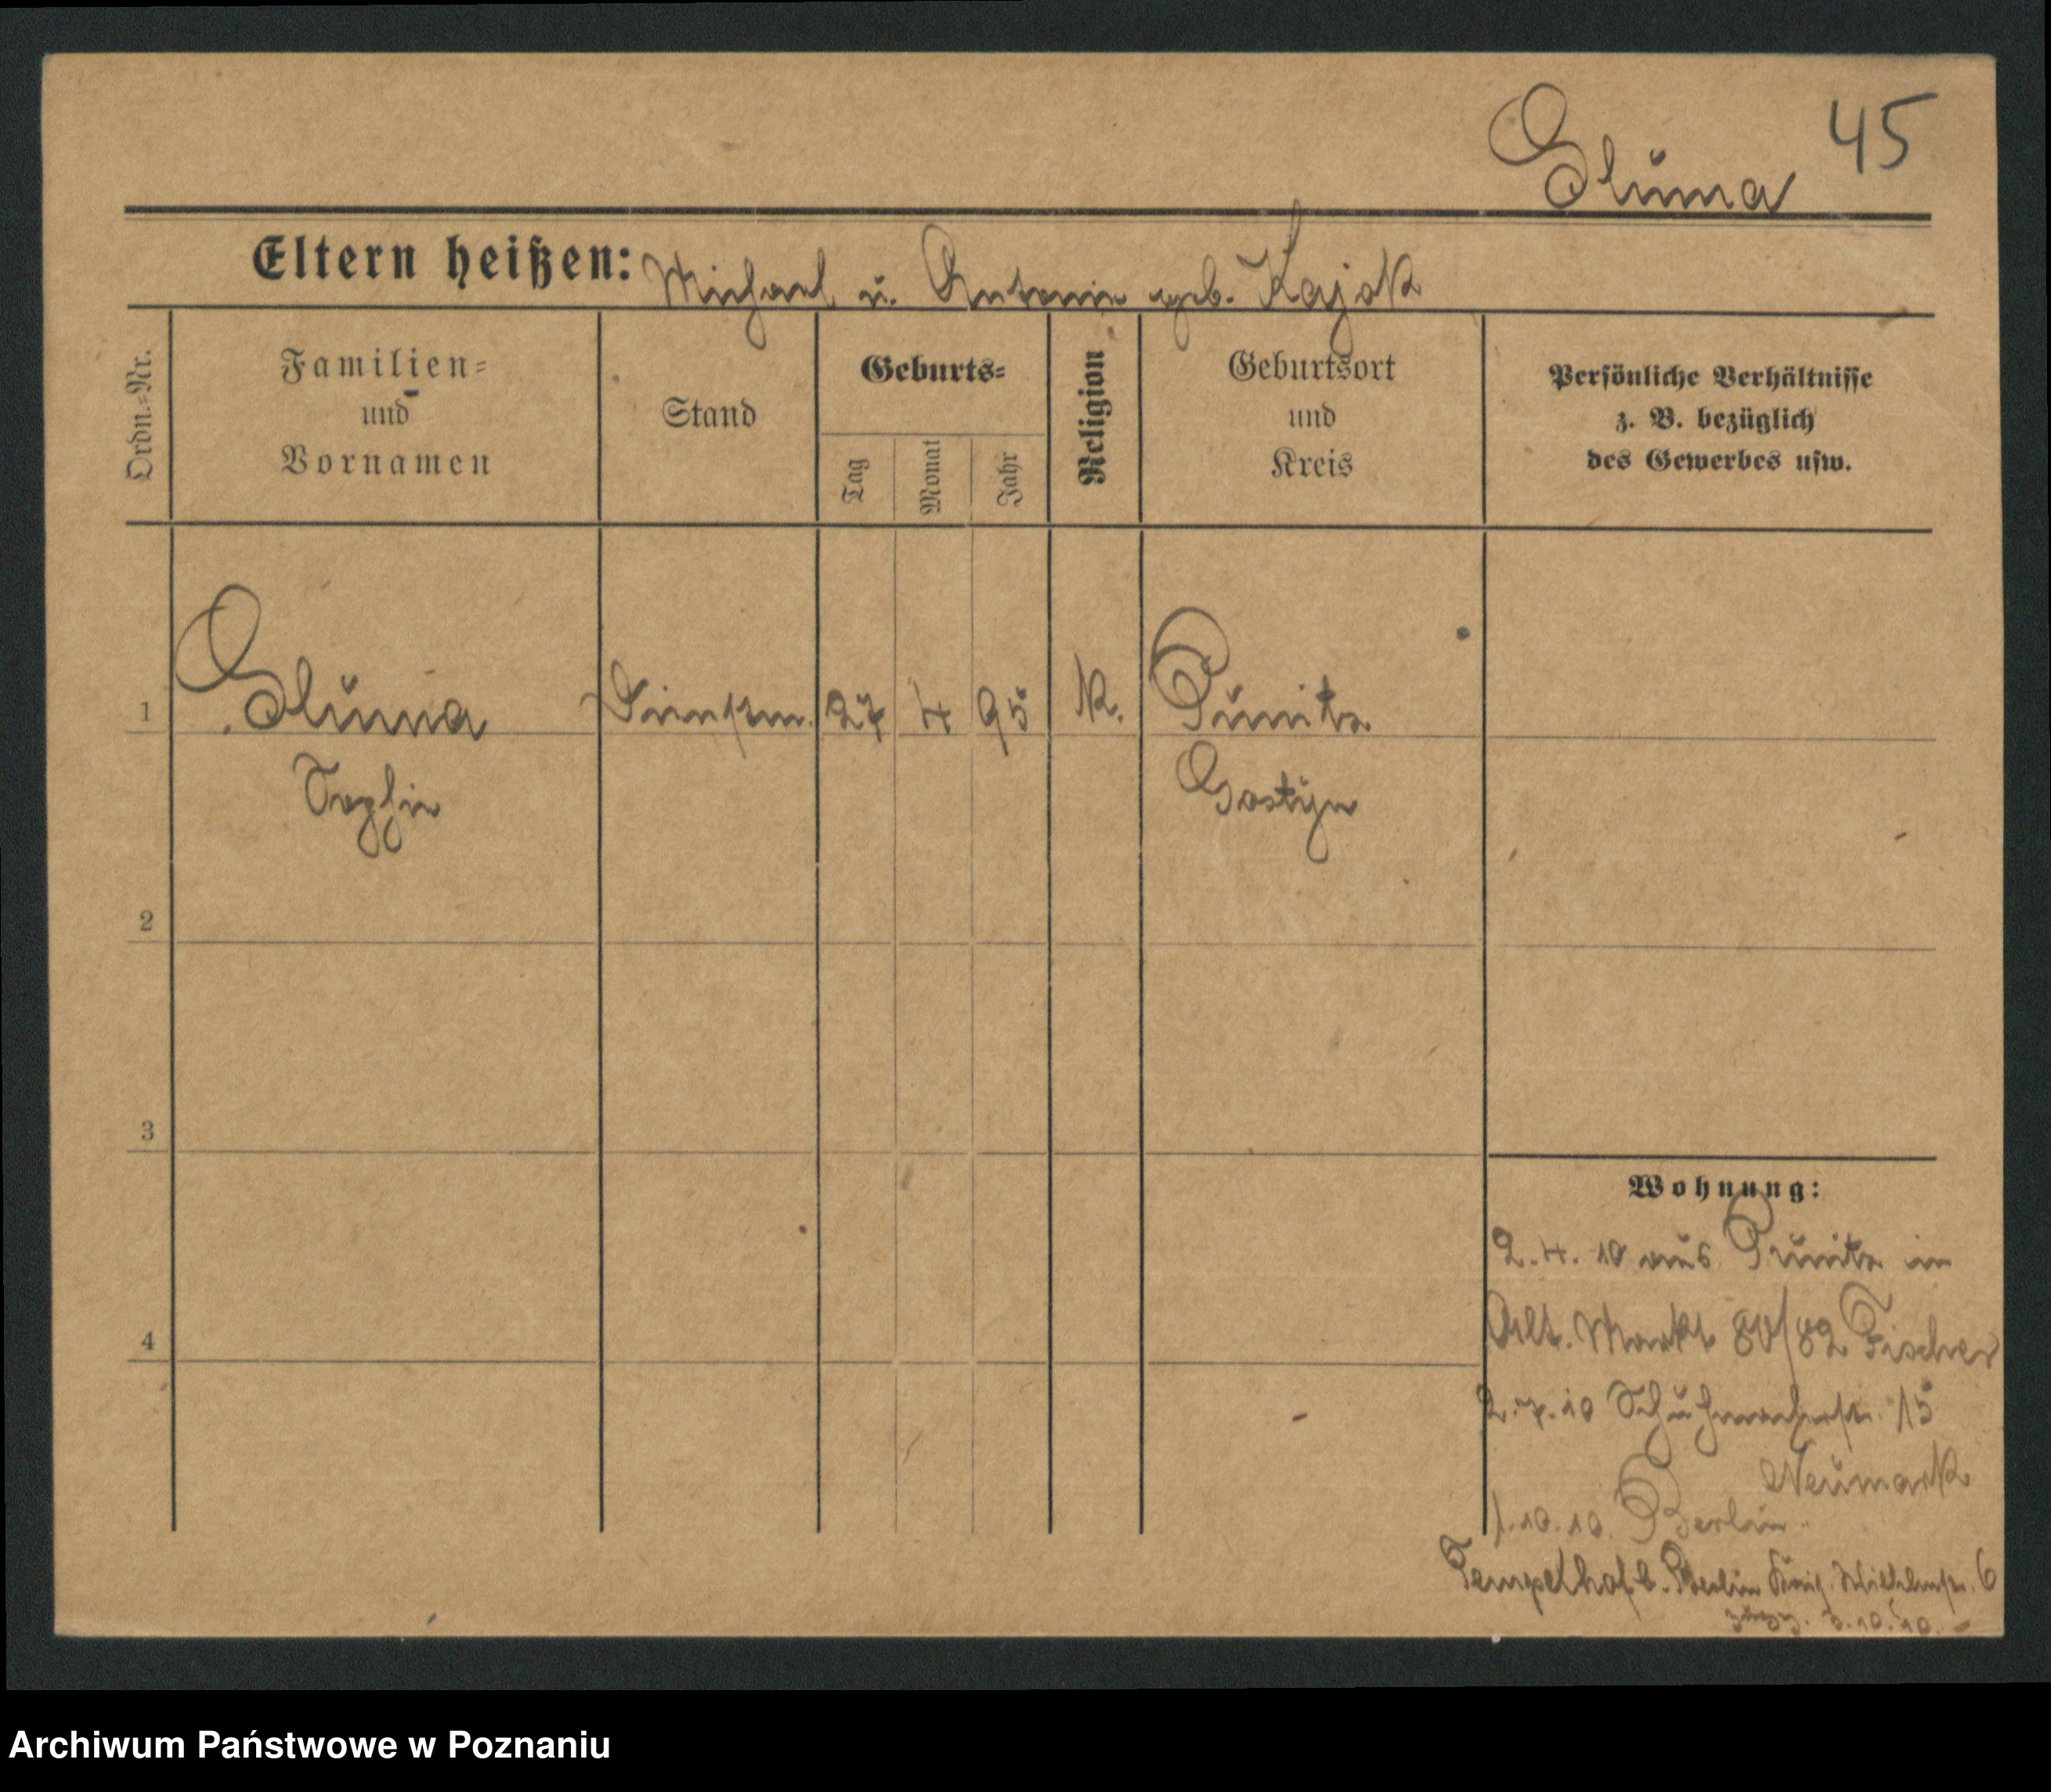 Gluma 45
Eltern heißen: Michael u. Antonie geb. Kajok
Ordn.=Nr.
Familien=
und
Vornamen
Stand
Geburts=
Tag
Monat
Jahr
Religion
Geburtsort
und
Kreis
Persönliche Verhältnisse
z. B. bezüglich
des Gewerbes usw.
1 Gluma 27 4 95 K. Punitz
Sophie Gostyn
2
3
4
Wohnung:
2.4.10 aus Punitz in
Alt. Markt 80/82 Fischer
2.7.10 Schuhmacherstr. 15
Neumark
1.10.10. Berlin
Tempelhof b. Berlin Wilhelmstr. 6
3.10.10.
Archiwum Państwowe w Poznaniu